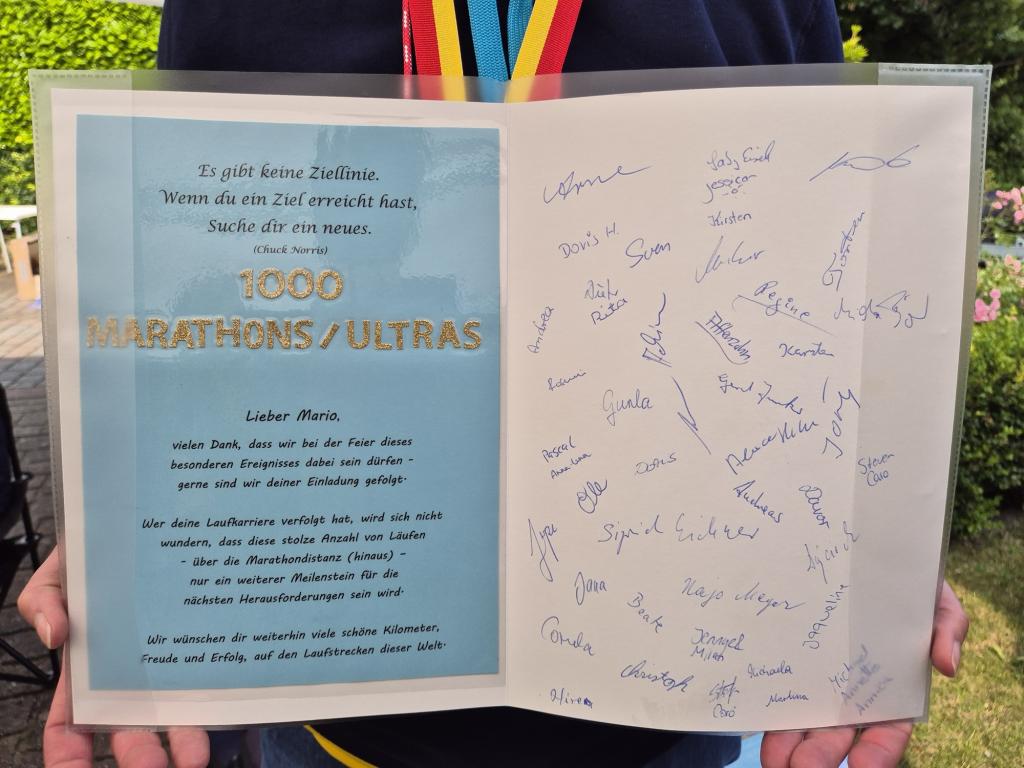 Es gibt keine Ziellinie.
Wenn du ein Ziel erreicht hast,
Suche dir ein neues.
(Chuck Norris)
1000
MARATHONS/ULTRAS
Lieber Mario,
vielen Dank, dass wir bei der Feier dieses
besonderen Ereignisses dabei sein dürfen -
gerne sind wir deiner Einladung gefolgt.
Wer deine Laufkarriere verfolgt hat, wird sich nicht
wundern, dass diese stolze Anzahl von Läufen
- über die Marathondistanz (hinaus) -
nur ein weiterer Meilenstein für die
nächsten Herausforderungen sein wird.
Wir wünschen dir weiterhin viele schöne Kilometer,
Freude und Erfolg, auf den Laufstrecken dieser Welt.
Anne
Jessica
Kirsten
Doris H.
Sven
Regine
Rita
Andrea
Karsten
Gunla
Jörg
Pascal
Anna Lena
Doris
Steven
Caro
Andreas
Sigrid Eichner
Jana
Hajo Meyer
Beate
Jacqueline
Milan
Christoph
Michaela
Martina
Michael
Annika
Caro